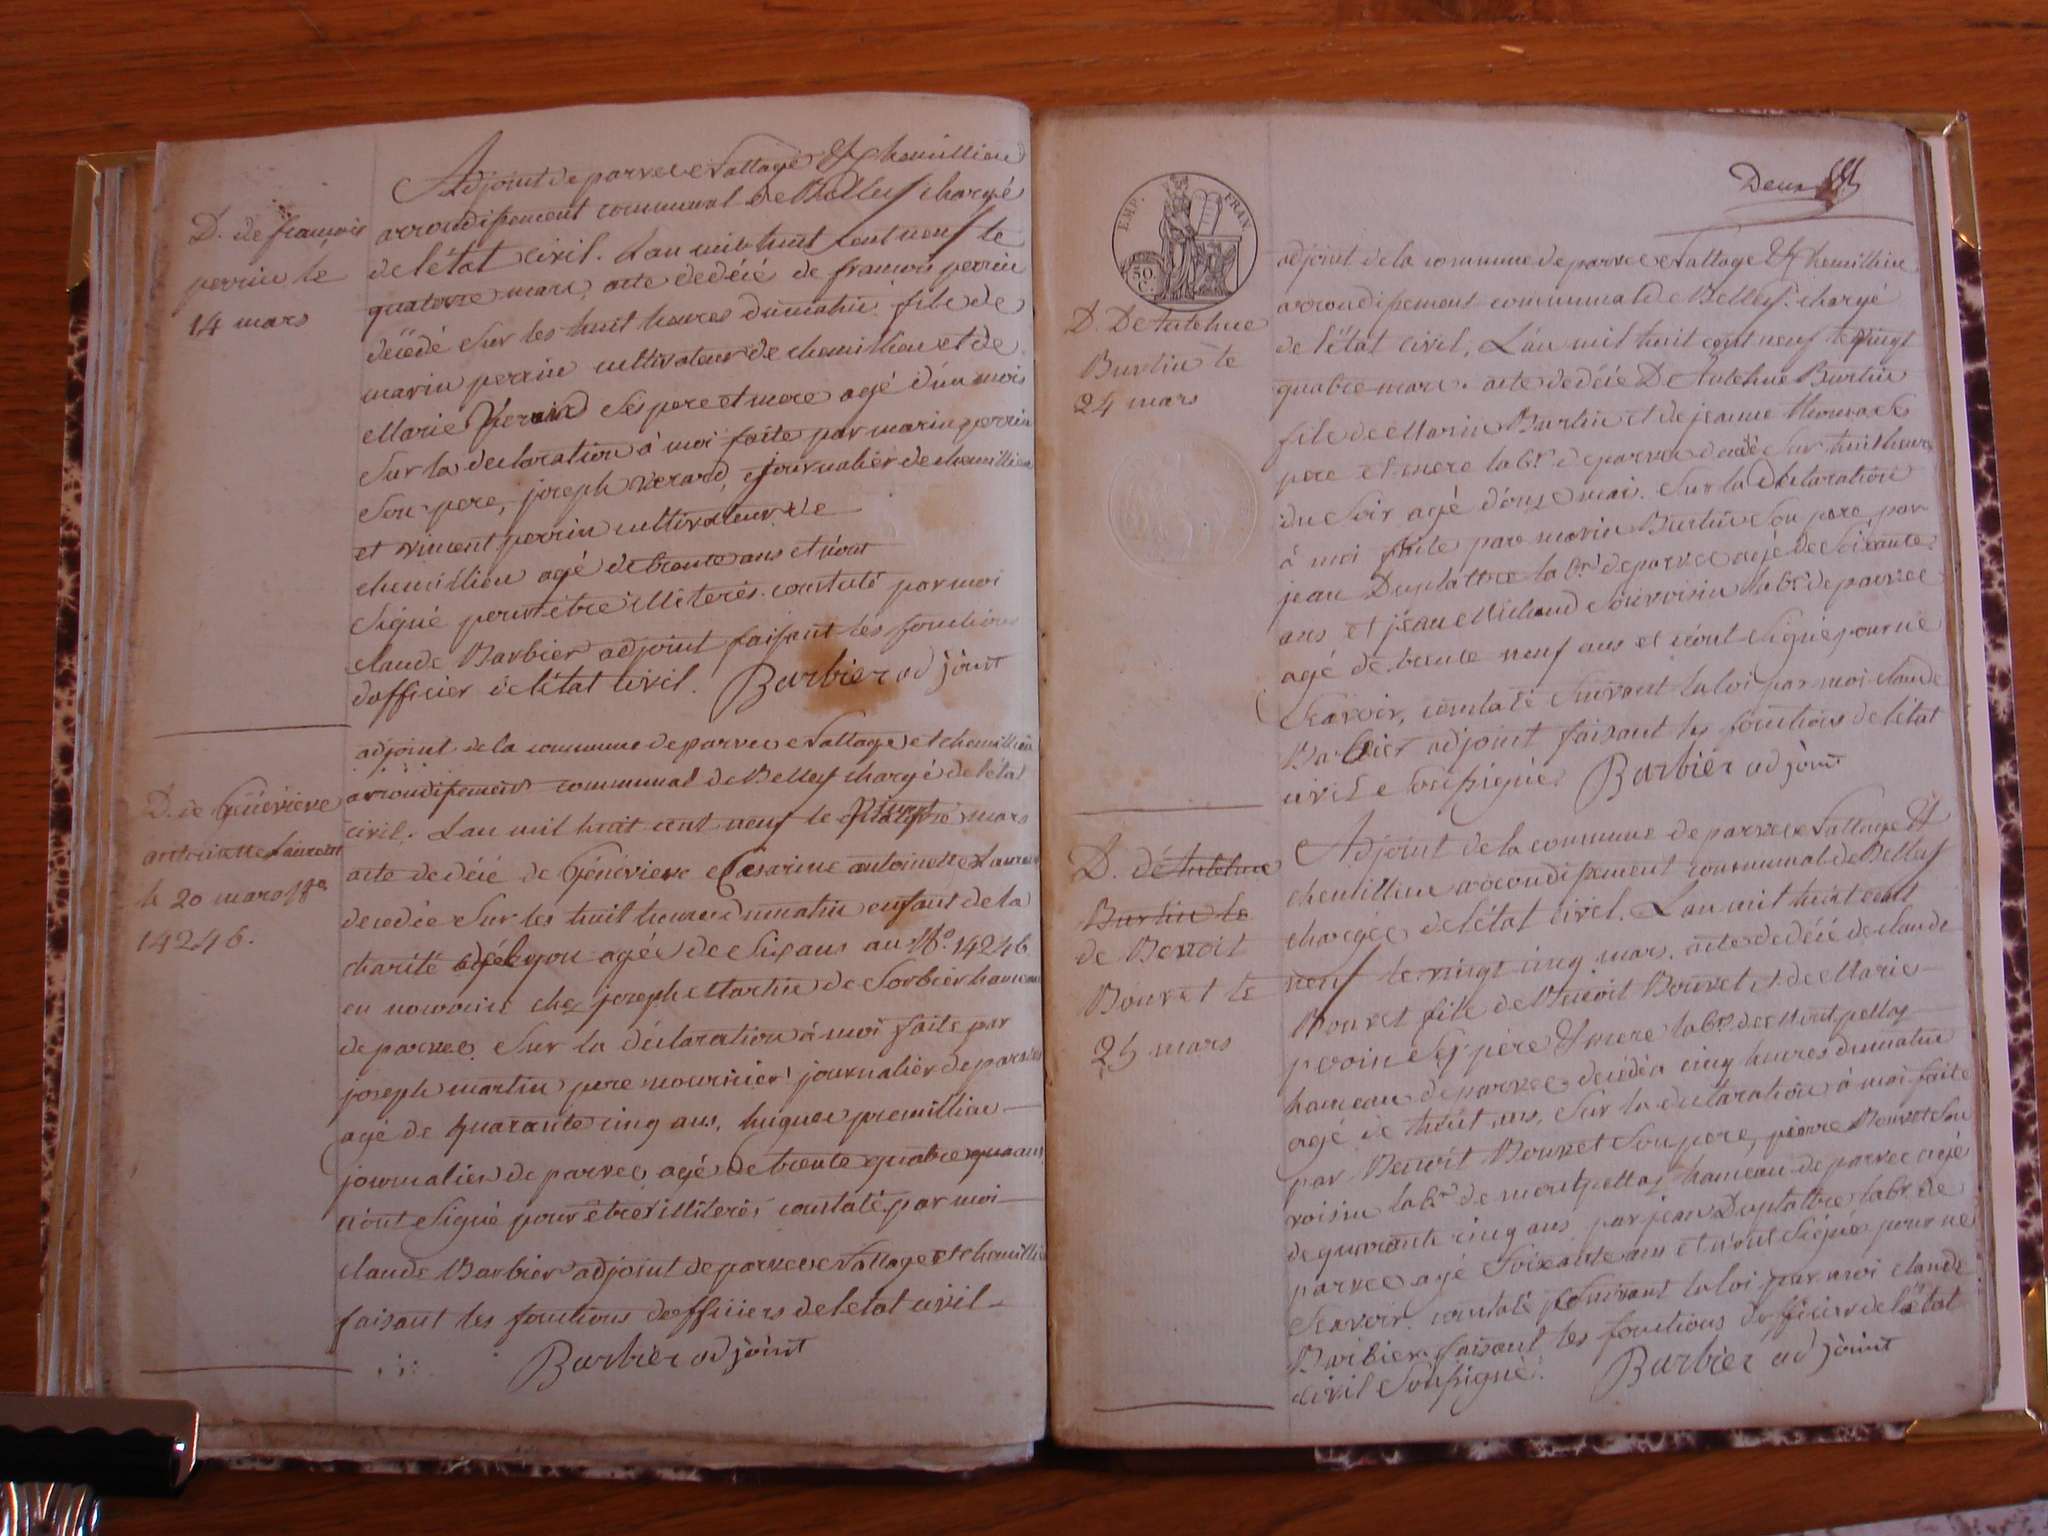 D. de francois
perrin le
14 mars
Adjoint de parves et Nattage & chemillieu
arrondissement communal de Belley chargé
de l'état civil. L'an mil huit cent neuf le
quatorze mars, acte dedéié de francois perrin
decedé Sur les huit heures dumatin fils de
marin perrin cultivateur de chemillieu et de
Marie ses pere et mere agé d'un mois
Sur la declaration à moi faite par marin perrin
Son pere, joseph verard, journalier de chemillieu
et vincent perrin cultivateur de
chemillieu agé de trente ans et n'ont
Signé pour être illiterés. constaté par moi
claude Barbier adjoint faisant les fonctions
d'officier de l'état civil. Barbier adjoint
D. de Géneviève
antoinette Laurent
le 20 mars
14246.
adjoint de la commune de parves et Nattage et chemillieu
arrondissement communal de Belley chargé de l'état
civil. L'an mil huit cent neuf le vingt mars
acte dedéié de Géneviève Cesarine antoinette Laurent
decedée Sur les huit heures dumatin enfant de la
charité de Lyon agée de Six ans au N.o 14246
en nourice chez joseph Martin de Sorbier hameau
de parves. Sur la déclaration à moi faite par
joseph martin pere nouricier journalier de parves
agé de quarante cinq ans, hugues premillieu
journalier de parves agé de trente quatre ans
n'ont Signé pour être illiterés constaté par moi
claude Barbier adjoint de parves et Nattage et chemillieu
faisant les fonctions d'officiers de l'etat civil
Barbier adjoint
Deux
EMP. FRAN.
50
C.
D. De Antelme
Burtin le
24 mars
adjoint de la commune de parves et Nattage & chemillieu
arrondissement communal de Belley. chargé
de l'état civil, L'an mil huit cent neuf le vingt
quatre mars. acte dedéié De Antelme Burtin
fils de Marin Burtin et de jeanne thomas Ses
pere et mere lab.r de parves decedé Sur huit heures
du Soir agé d'onze mois. Sur la déclaration
à moi faite par marin Burtin Son pere, par
jean Duplattre lab.r de parves agé de Soixante
ans et jean Michaud Son voisin lab.r de parves
agé de trente neuf ans et n'ont Signé pour ne
Scavoir, constaté Suivant la loi par moi claude
Barbier adjoint faisant les fonctions de l'état
civil Soussigné. Barbier adjoint
D. de Antelme
Burtin le
de Benoit
Bouvet le
25 mars
Adjoint de la commune de parves et Nattage &
chemillieu arrondissement communal de Belley
chargée de l'état civil. L'an mil huit cent
neuf le vingt cinq mars. acte dedéié de claude
Bouvet fils de Benoit Bouvet & de Marie
peroin Ses père & mere lab.rs de Montpellaz
hameau de parves decédé à cinq heures dumatin
agé de huit ans, Sur la declaration à moi faite
par Benoit Bouvet Son pere, pierre Bouvet Son
voisin lab.r de montpellaz hameau de parves agé
de quarante cinq ans par jean Duplattre lab.r de
parves agé Soixante ans et n'ont Signé pour ne
Scavoir. constaté Suivant la loi par moi claude
Barbier faisant les fonctions d'officier de l'état
civil Soussigné. Barbier adjoint